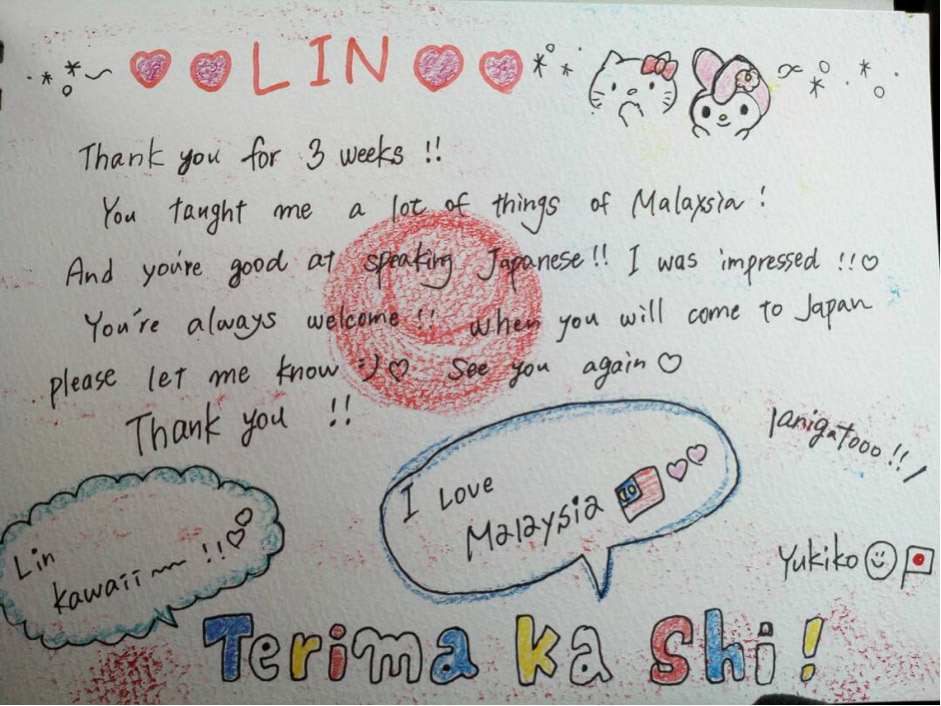 LIN
Thank you for 3 weeks !!
You taught me a lot of things of Malaysia !
And you're good at speaking Japanese !! I was impressed !!♡
You're always welcome !! when you will come to Japan
please let me know :) ♡ See you again ♡
Thank you !!
I Love
Malaysia
Lin
kawaii~ !!
Yukiko
Terima ka Shi !